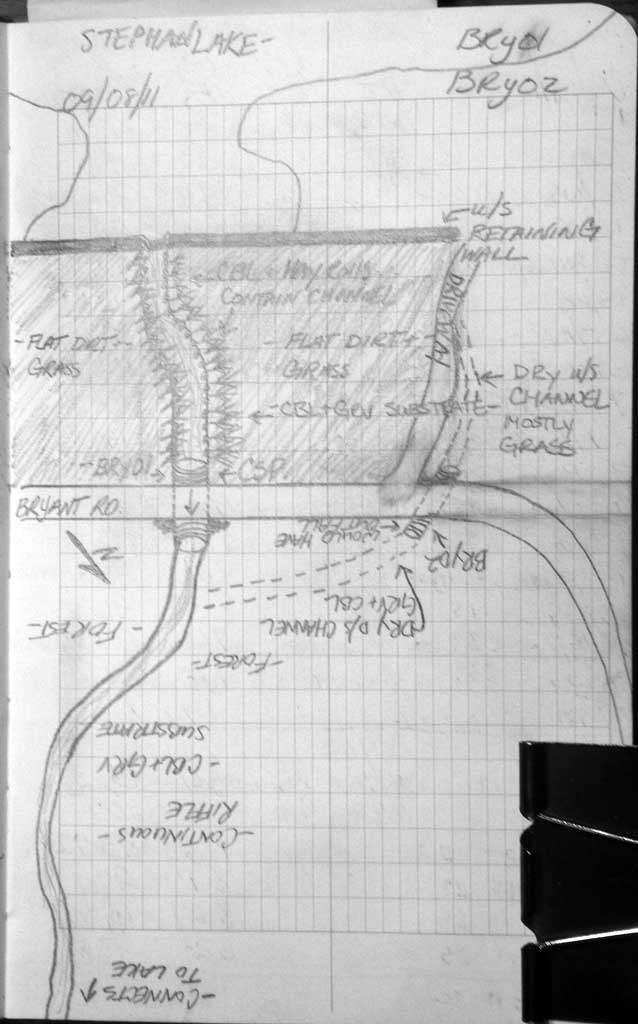 STEPHAN LAKE-
BRY01
BRY02
09/08/11
← U/S
RETAINING
WALL
← CBL + HAY ROLLS
CONTAIN CHANNEL
DRIVEWAY
- FLAT DIRT +
GRASS
- FLAT DIRT +
GRASS
← DRY U/S
CHANNEL
MOSTLY
GRASS
← CBL + GRV SUBSTRATE
- BRY01
← CSP
BRYANT RD.
N
WOULD HAVE
OUTFALL
BRY02
DRY D/S CHANNEL
GRV + CBL
- FOREST -
- FOREST -
- CBL + GRV
SUBSTRATE
- CONTINUOUS
RIFFLE
- CONNECTS
TO LAKE